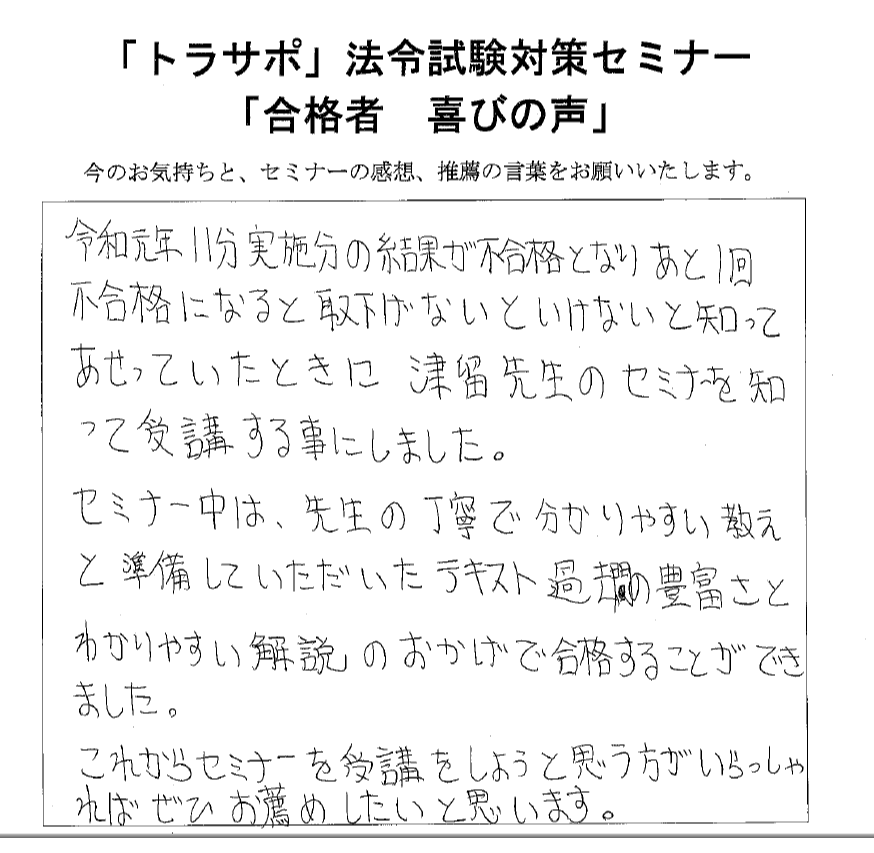 「トラサポ」法令試験対策セミナー
「合格者　喜びの声」
今のお気持ちと、セミナーの感想、推薦の言葉をお願いいたします。
令和元年11分実施分の結果が不合格となりあと1回
不合格になると取下げないといけないと知って
あせっていたときに 津留先生のセミナーを知
って受講する事にしました。
セミナー中は、先生の丁寧で分かりやすい教え
と準備していただいたテキスト過去問の豊富さと
わかりやすい解説のおかげで合格することができ
ました。
これからセミナーを受講をしようと思う方がいらっしゃ
ればぜひお薦めしたいと思います。